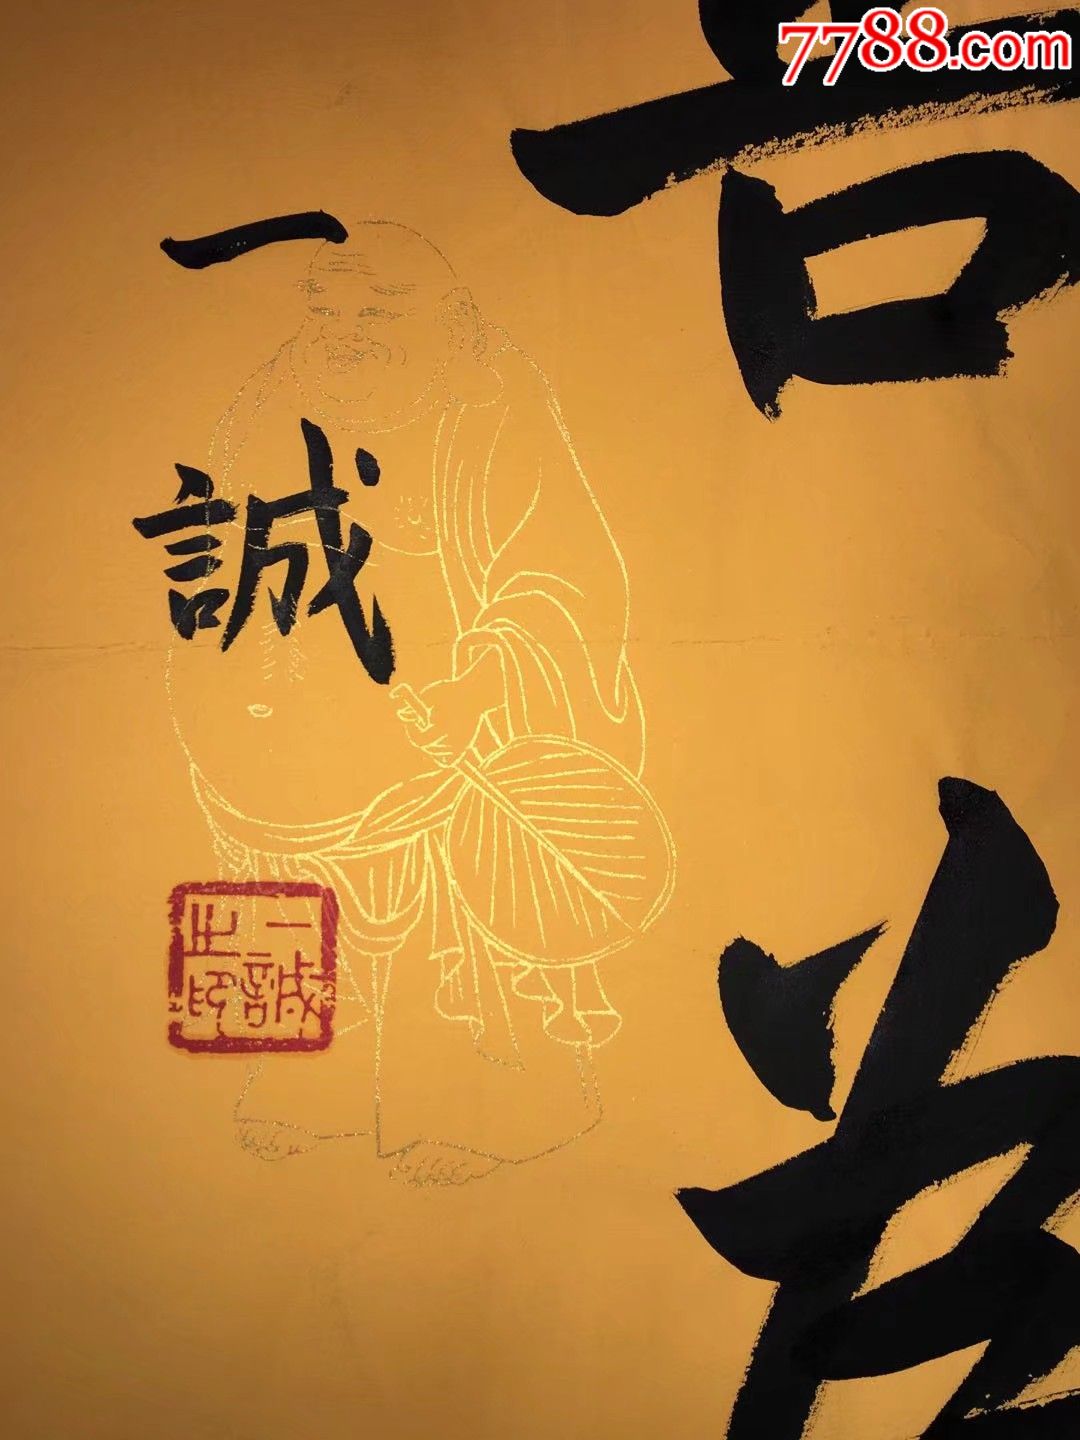 7788.com
一
誠
一誠
之印